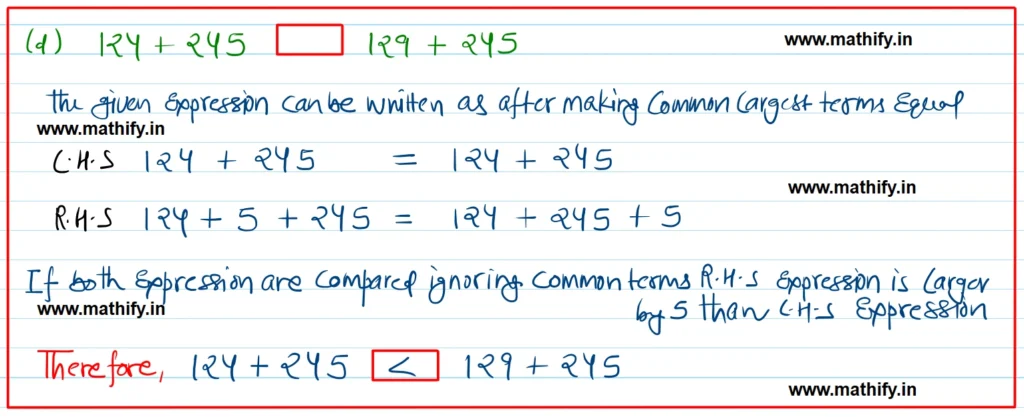 (d) 124 + 245 129 + 245 www.mathify.in
The given Expression can be written as after making Common Largest terms Equal
www.mathify.in
L.H.S 124 + 245 = 124 + 245
www.mathify.in
R.H.S 124 + 5 + 245 = 124 + 245 + 5
If both Expression are Compared ignoring Common terms R.H.S Expression is Larger
by 5 than L.H.S Expression
www.mathify.in
Therefore, 124 + 245 < 129 + 245
www.mathify.in